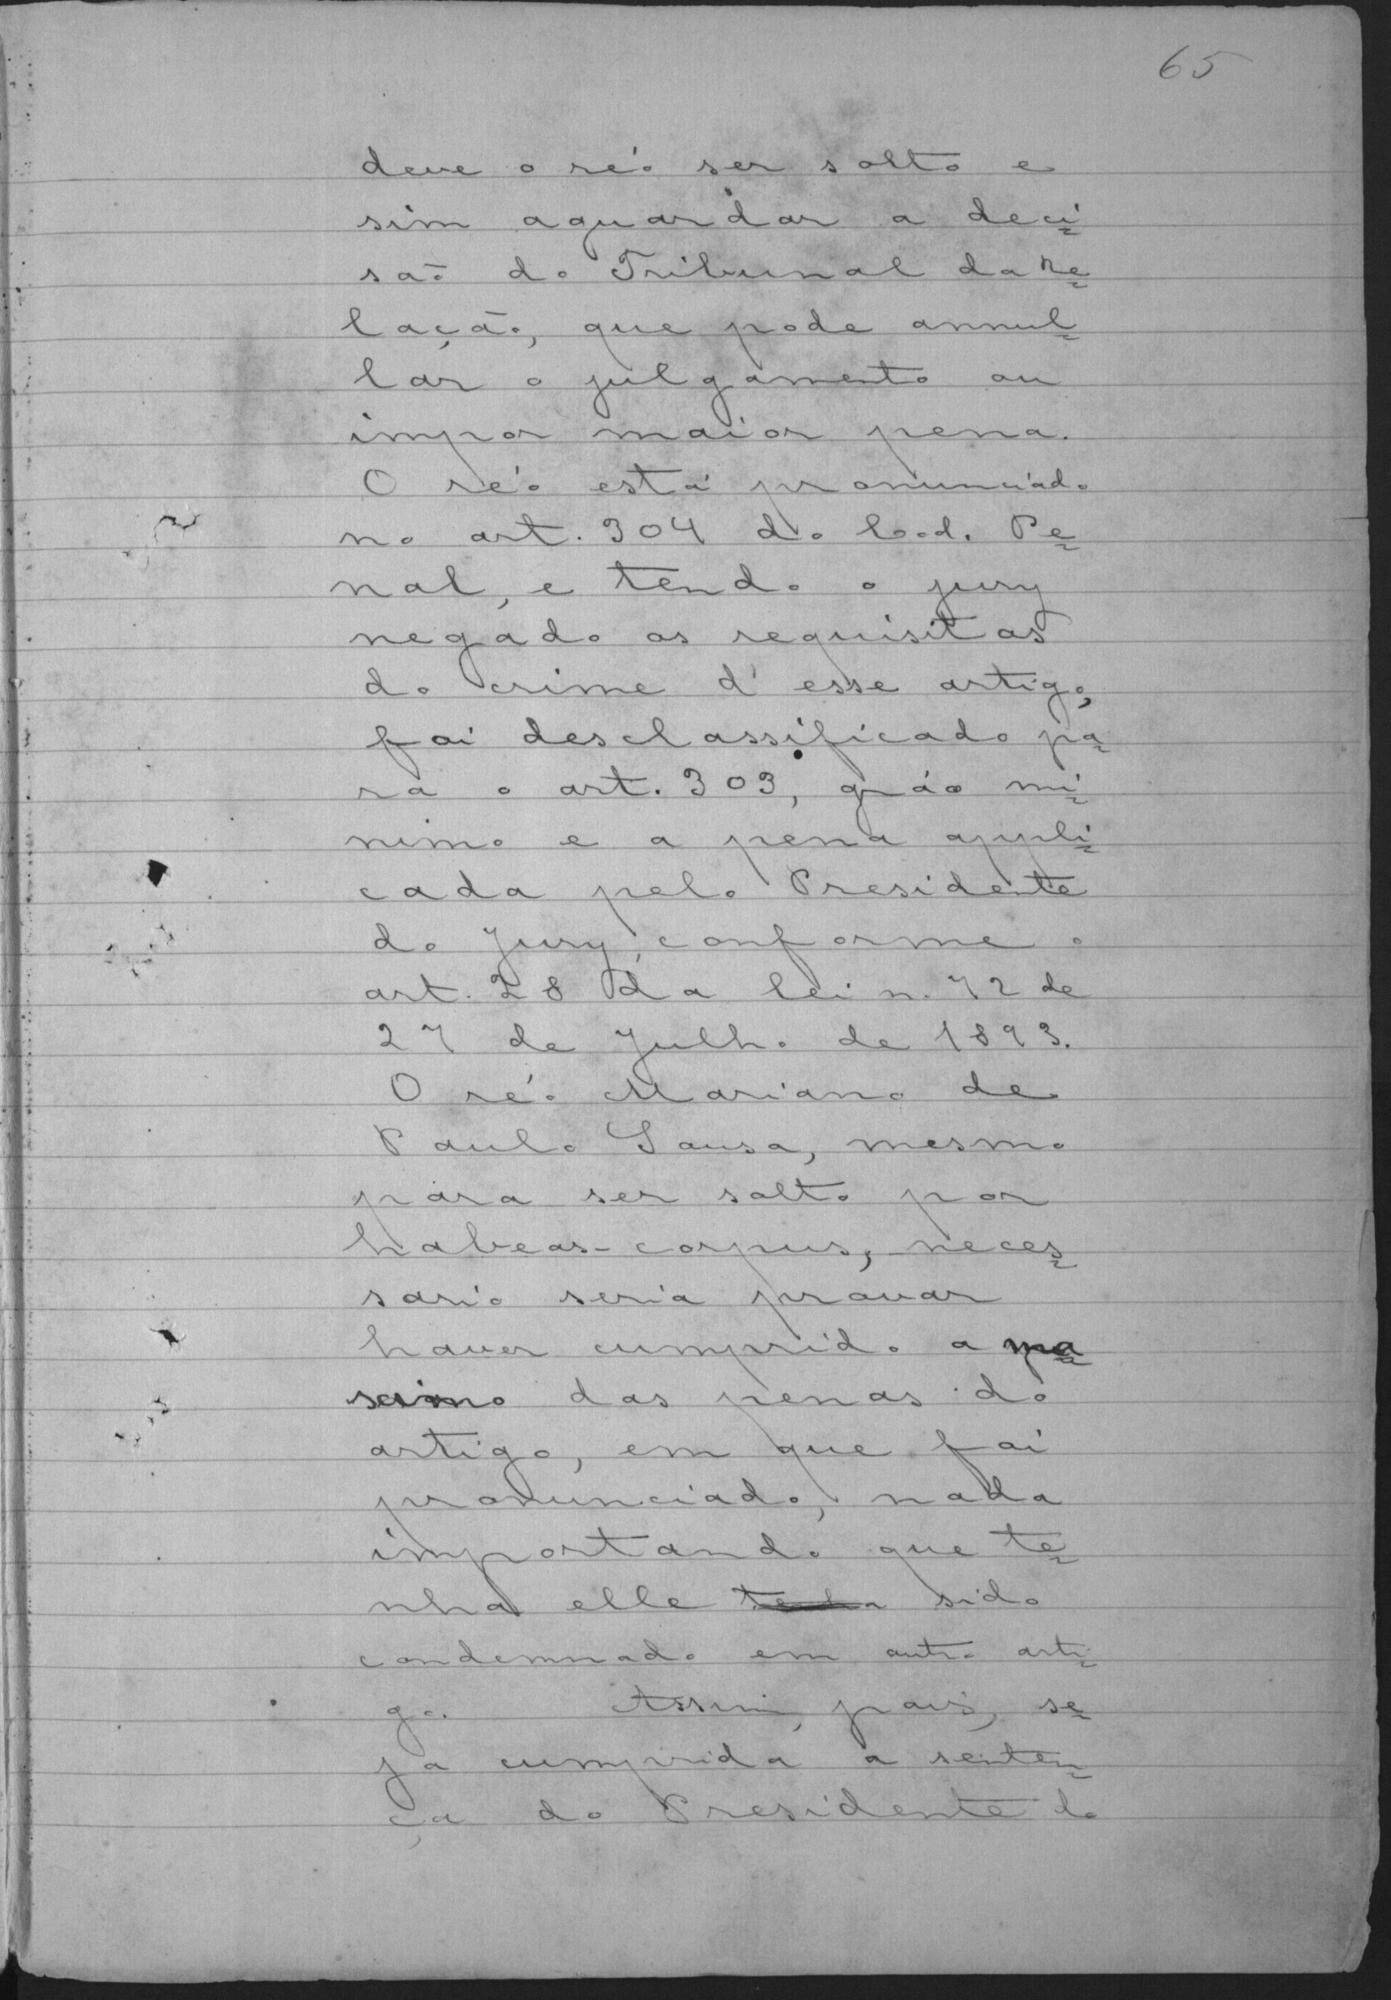 65
deve o réo ser solto e
sim aguardar a deci=
são do Tribunal da Re=
lação, que pode annul=
lar o julgamento ou
impor maior pena.
O réo está pronunciado
no art. 304 do Cod. Pe=
nal, e tendo o jury
negado os requisitos
do crime d'esse artigo,
foi desclassificado pa=
ra o art. 303, gráo mi=
nimo e a pena appli=
cada pelo Presidente
do Jury, conforme o
art. 28 da lei n. 72 de
27 de Julho de 1893.
O réo Mariano de
Paulo Sousa, mesmo
para ser solto por
habeas-corpus, neces=
sario seria provar
haver cumprido o ma=
ximo das penas do
artigo, em que foi
pronunciado, nada
importando que te=
nha elle tenha sido
condemnado em outro arti=
go. Assim, pois, se=
ja cumprida a senten=
ça do Presidente do